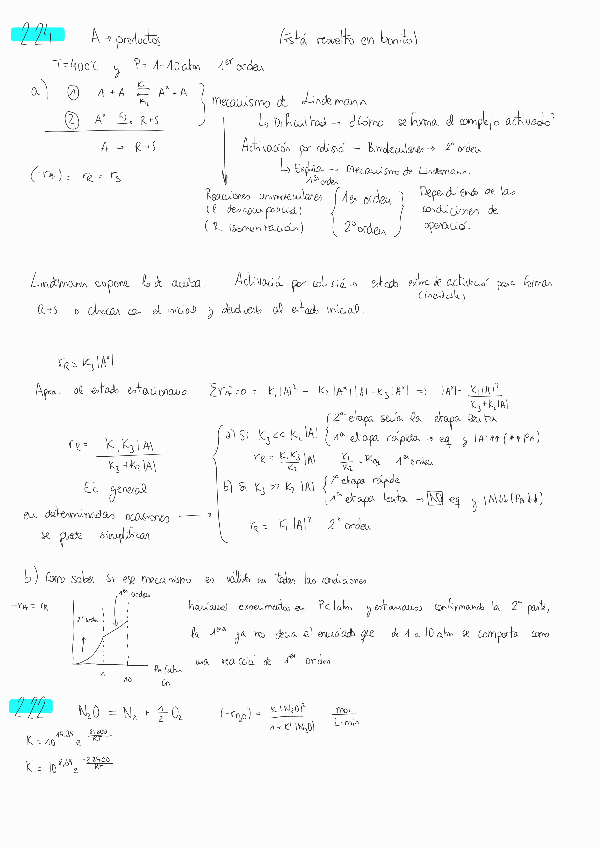 2.24 A → productos (Está resuelto en bonito)
T=400ºC y P=1-10atm 1er orden
a) ① A + A ⇄ A* + A } Mecanismo de Lindemann
K1 K2
↳ Dificultad → ¿Cómo se forma el complejo activado?
② A* K3→ R+S
A → R+S
Activación por colisión - Bimoleculares → 2º orden
↳ Explica → Mecanismo de Lindemann.
1er orden
(-rA) = rR = rS
Reacciones unimoleculares { 1er orden } Dependiendo de las
(R. descomposición) condiciones de
(R. isomerización) 2º orden operació.
Lindemann supone lo de arriba. Activació por colisió a estado de activació para formar
(inestable)
R+S o chocar con el inicial y devolverlo al estado inicial.
rR = K3|A*|
Aprox. al estado estacionario ΣrA*=0 = K1|A|² - K2|A*||A| - K3|A*| => |A*|= K1|A|² / K3+K2|A|
rR = K1K3|A| / K3+K2|A|
Ec general
en determinadas ocasiones →
se puede simplificar
a) Si K3 << K2|A| { 2ª etapa sería la etapa lenta
1ª etapa rápida → eq y |A|↑↑(↑↑PA)
rR = K1K3/K2 |A| K1/K2 = Keq 1er orden
b) Si K3 >> K2|A| { 2ª etapa rápida
1ª etapa lenta → NO eq y |A|↓↓(PA↓↓)
rR = K1|A|² 2º orden
b) Como saber si ese mecanismo es válido en todas las condiciones
-rA = rR
1er orden
2º orden
1 10
PA (atm)
Haciendo experimentos en P<1atm y estaríamos confirmando la 2ª parte,
la 1era ya nos decía el enunciado que de 1 a 10 atm se comporta como
una reacció de 1er orden
2.22 N2O = N2 + 1/2 O2 (-rN2O) = K|N2O|² / 1+K'|N2O| mol / L·min
K = 10^
K =